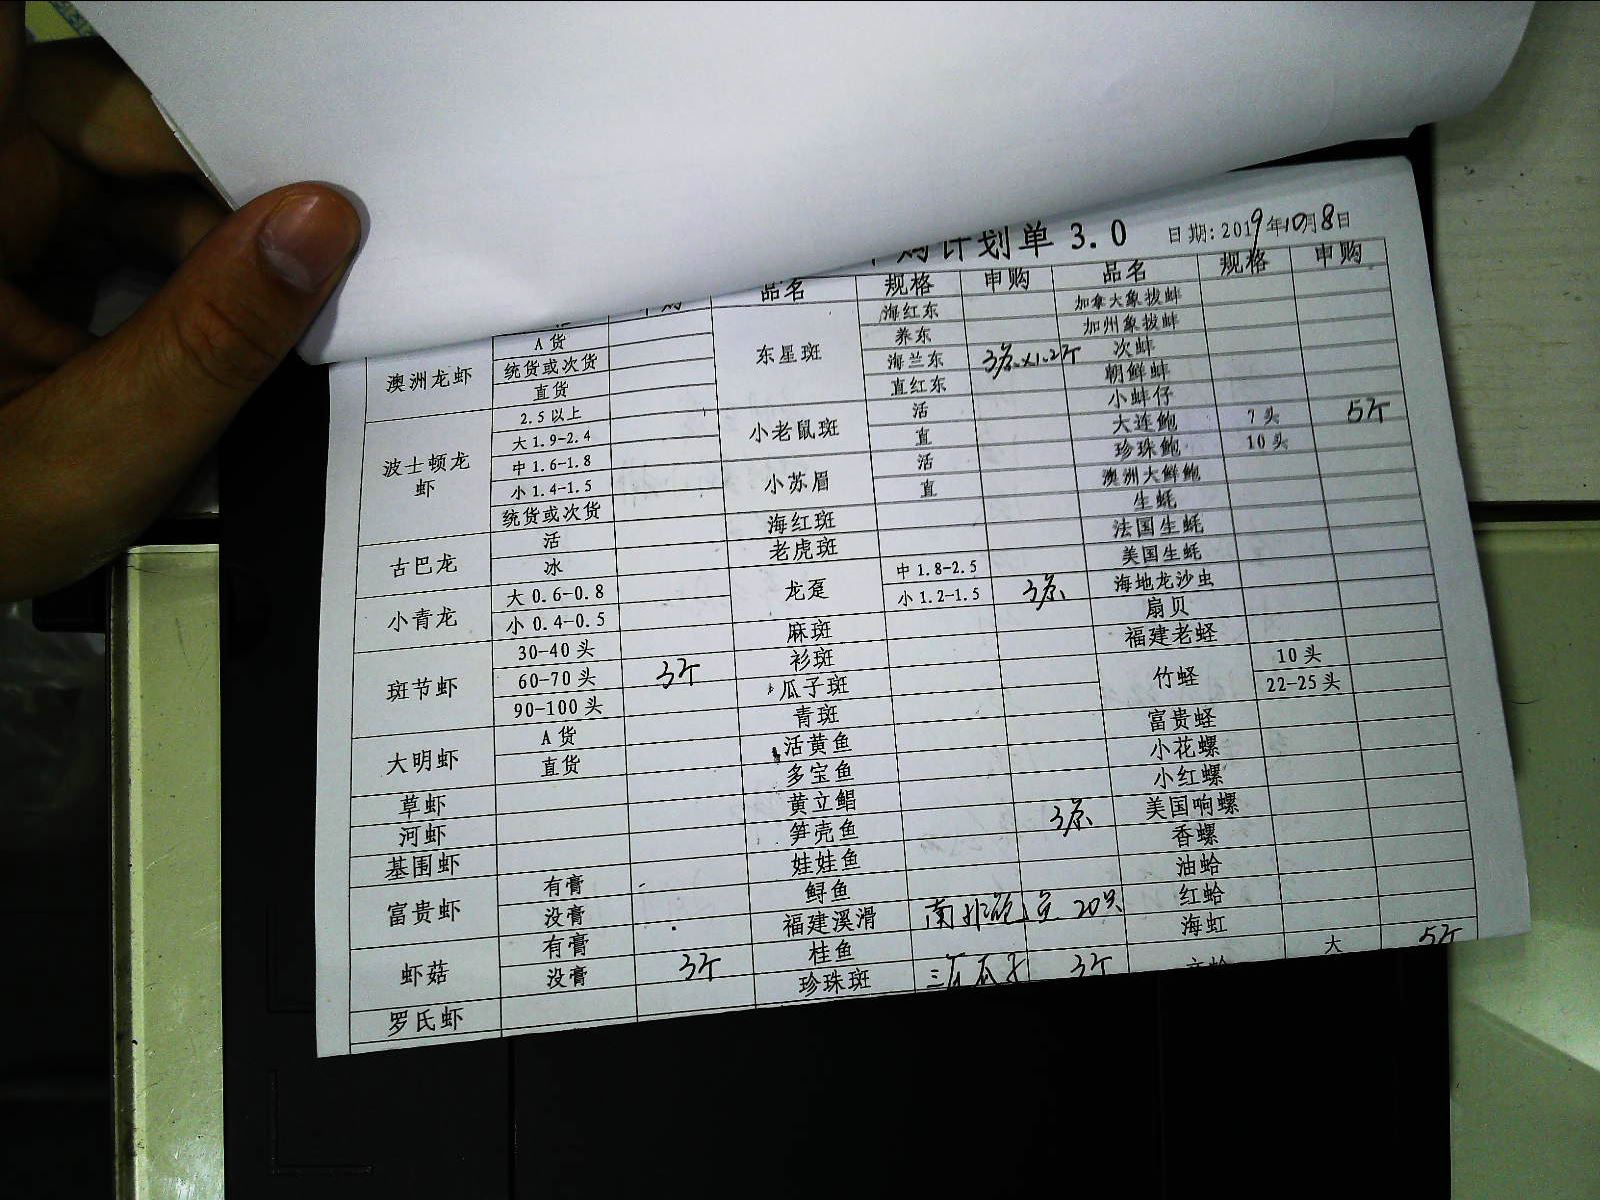 购计划单3.0 日期:2019年10月8日
品名 规格 申购 品名 规格 申购
澳洲龙虾 A货
统货或次货
直货
波士顿龙虾 2.5以上
大1.9-2.4
中1.6-1.8
小1.4-1.5
统货或次货
古巴龙 活
冰
小青龙 大0.6-0.8
小0.4-0.5
斑节虾 30-40头
60-70头 3斤
90-100头
大明虾 A货
直货
草虾
河虾
基围虾
富贵虾 有膏
没膏
虾菇 有膏
没膏 3斤
罗氏虾
东星斑 海红东
养东
海兰东 3条x1.2斤
直红东
小老鼠斑 活
直
小苏眉 活
直
海红斑
老虎斑
龙趸 中1.8-2.5
小1.2-1.5 3条
麻斑
衫斑
瓜子斑
青斑
活黄鱼
多宝鱼
黄立鲳
笋壳鱼 3条
娃娃鱼
鲟鱼
福建溪滑 南非鲍 20只
桂鱼
珍珠斑 3斤
加拿大象拔蚌
加州象拔蚌
次蚌
朝鲜蚌
小蚌仔
大连鲍 7头 5斤
珍珠鲍 10头
澳洲大鲜鲍
生蚝
法国生蚝
美国生蚝
海地龙沙虫
扇贝
福建老蛏
竹蛏 10头
22-25头
富贵蛏
小花螺
小红螺
美国响螺
香螺
油蛤
红蛤
海虹
大 5斤